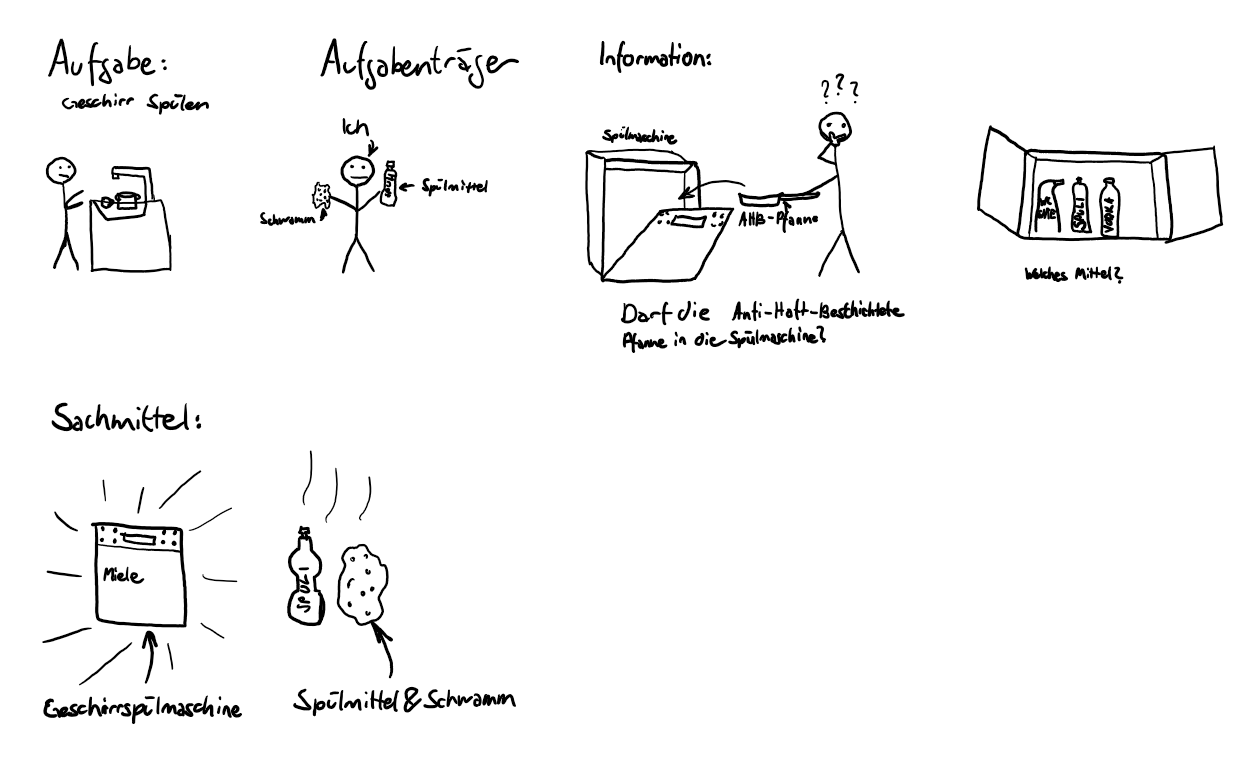 Aufgabe:
Geschirr Spülen
Aufgabenträger
Ich
Schwamm
Spülmittel
Information:
Spülmaschine
???
AHB-Pfanne
Darf die Anti-Haft-Beschichtete
Pfanne in die Spülmaschine?
WC
SPÜLI
VODKA
Welches Mittel?
Sachmittel:
Miele
Geschirrspülmaschine
SPÜLI
Spülmittel & Schwamm